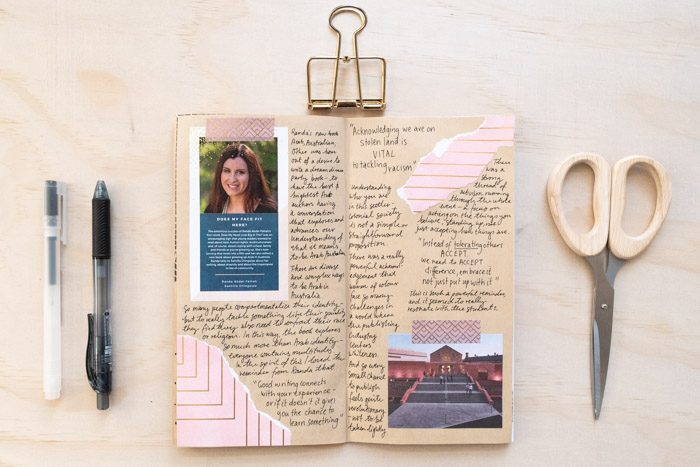 DOES MY FACE FIT
HERE?
Randa Abdel-Fattah
Randa's new book
Arab, Australian,
Other was born
out of a desire to
write a dream dinner
party book - to
have the best &
brightest Arab
authors having
a conversation
that explores and
advances our
understanding of
what it means
to be Arab Australian.
There are diverse
and complex ways
to be Arab in
Australia.
So many people compartmentalise their identity -
but to really tackle something like their
they find they also need to confront their race
or religion. In this way, the book explores
so much more than Arab identity -
everyone contains multitudes
In the spirit of this I loved the
reminder from Randa that
"Good writing connects
with your experience -
or if it doesn't it gives
you the chance to
learn something"
"Acknowledging we are on
stolen land is
VITAL
to tackling
racism"
Understanding
who you are
in this settler
colonial society
is not a simple or
straightforward
proposition.
There was a really
powerful acknowl-
edgement that
women of colour
face so many
challenges in
a world where
the publishing
industry
centers
whiteness.
And so every
small chance
to publish
feels quite
revolutionary
- not to be
taken lightly
There
was a
strong
thread of
activism running
through the whole
event - a focus on
acting on the things you
believe, standing up, not
just accepting how things are.
"Instead of tolerating others
ACCEPT.
we need to ACCEPT
difference, embrace it
not just put up with it"
This is such a powerful reminder
and it seemed to really
resonate with the students.